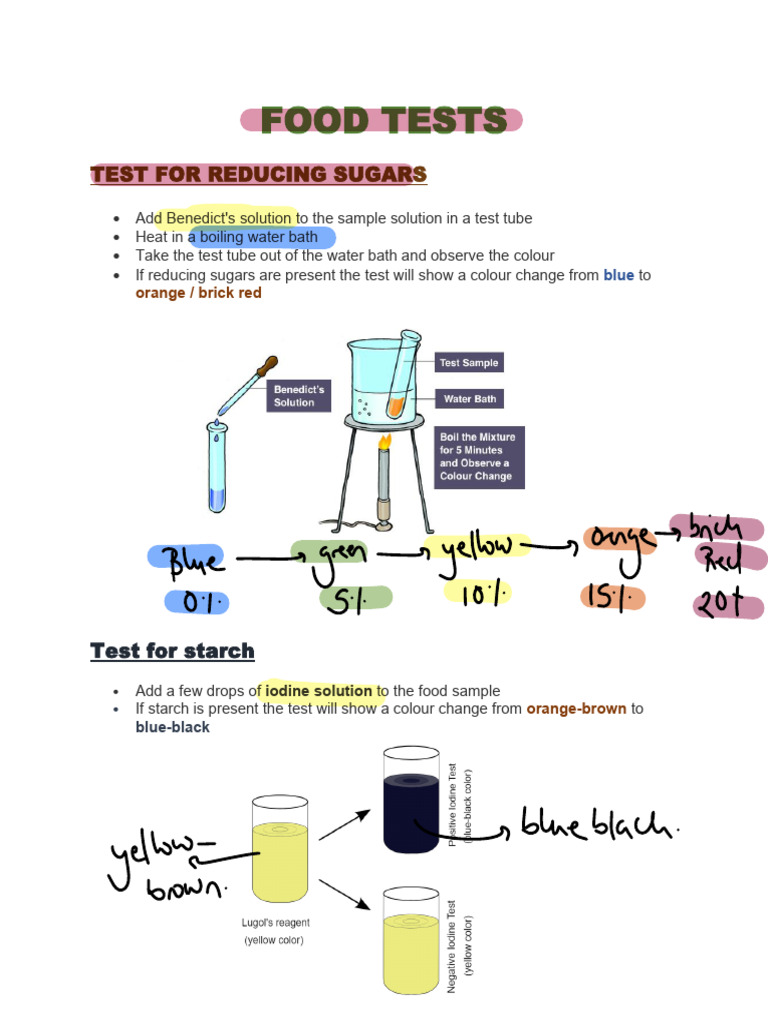 FOOD TESTS
TEST FOR REDUCING SUGARS
• Add Benedict's solution to the sample solution in a test tube
• Heat in a boiling water bath
• Take the test tube out of the water bath and observe the colour
• If reducing sugars are present the test will show a colour change from blue to
orange / brick red
Benedict's
Solution
Test Sample
Water Bath
Boil the Mixture
for 5 Minutes
and Observe a
Colour Change
Blue → green → yellow → orange → brick
Red
0% 5% 10% 15% 20+
Test for starch
• Add a few drops of iodine solution to the food sample
• If starch is present the test will show a colour change from orange-brown to
blue-black
Positive Iodine Test
(blue-black color)
blue black.
yellow-
brown.
Lugol's reagent
(yellow color)
Negative Iodine Test
(yellow color)